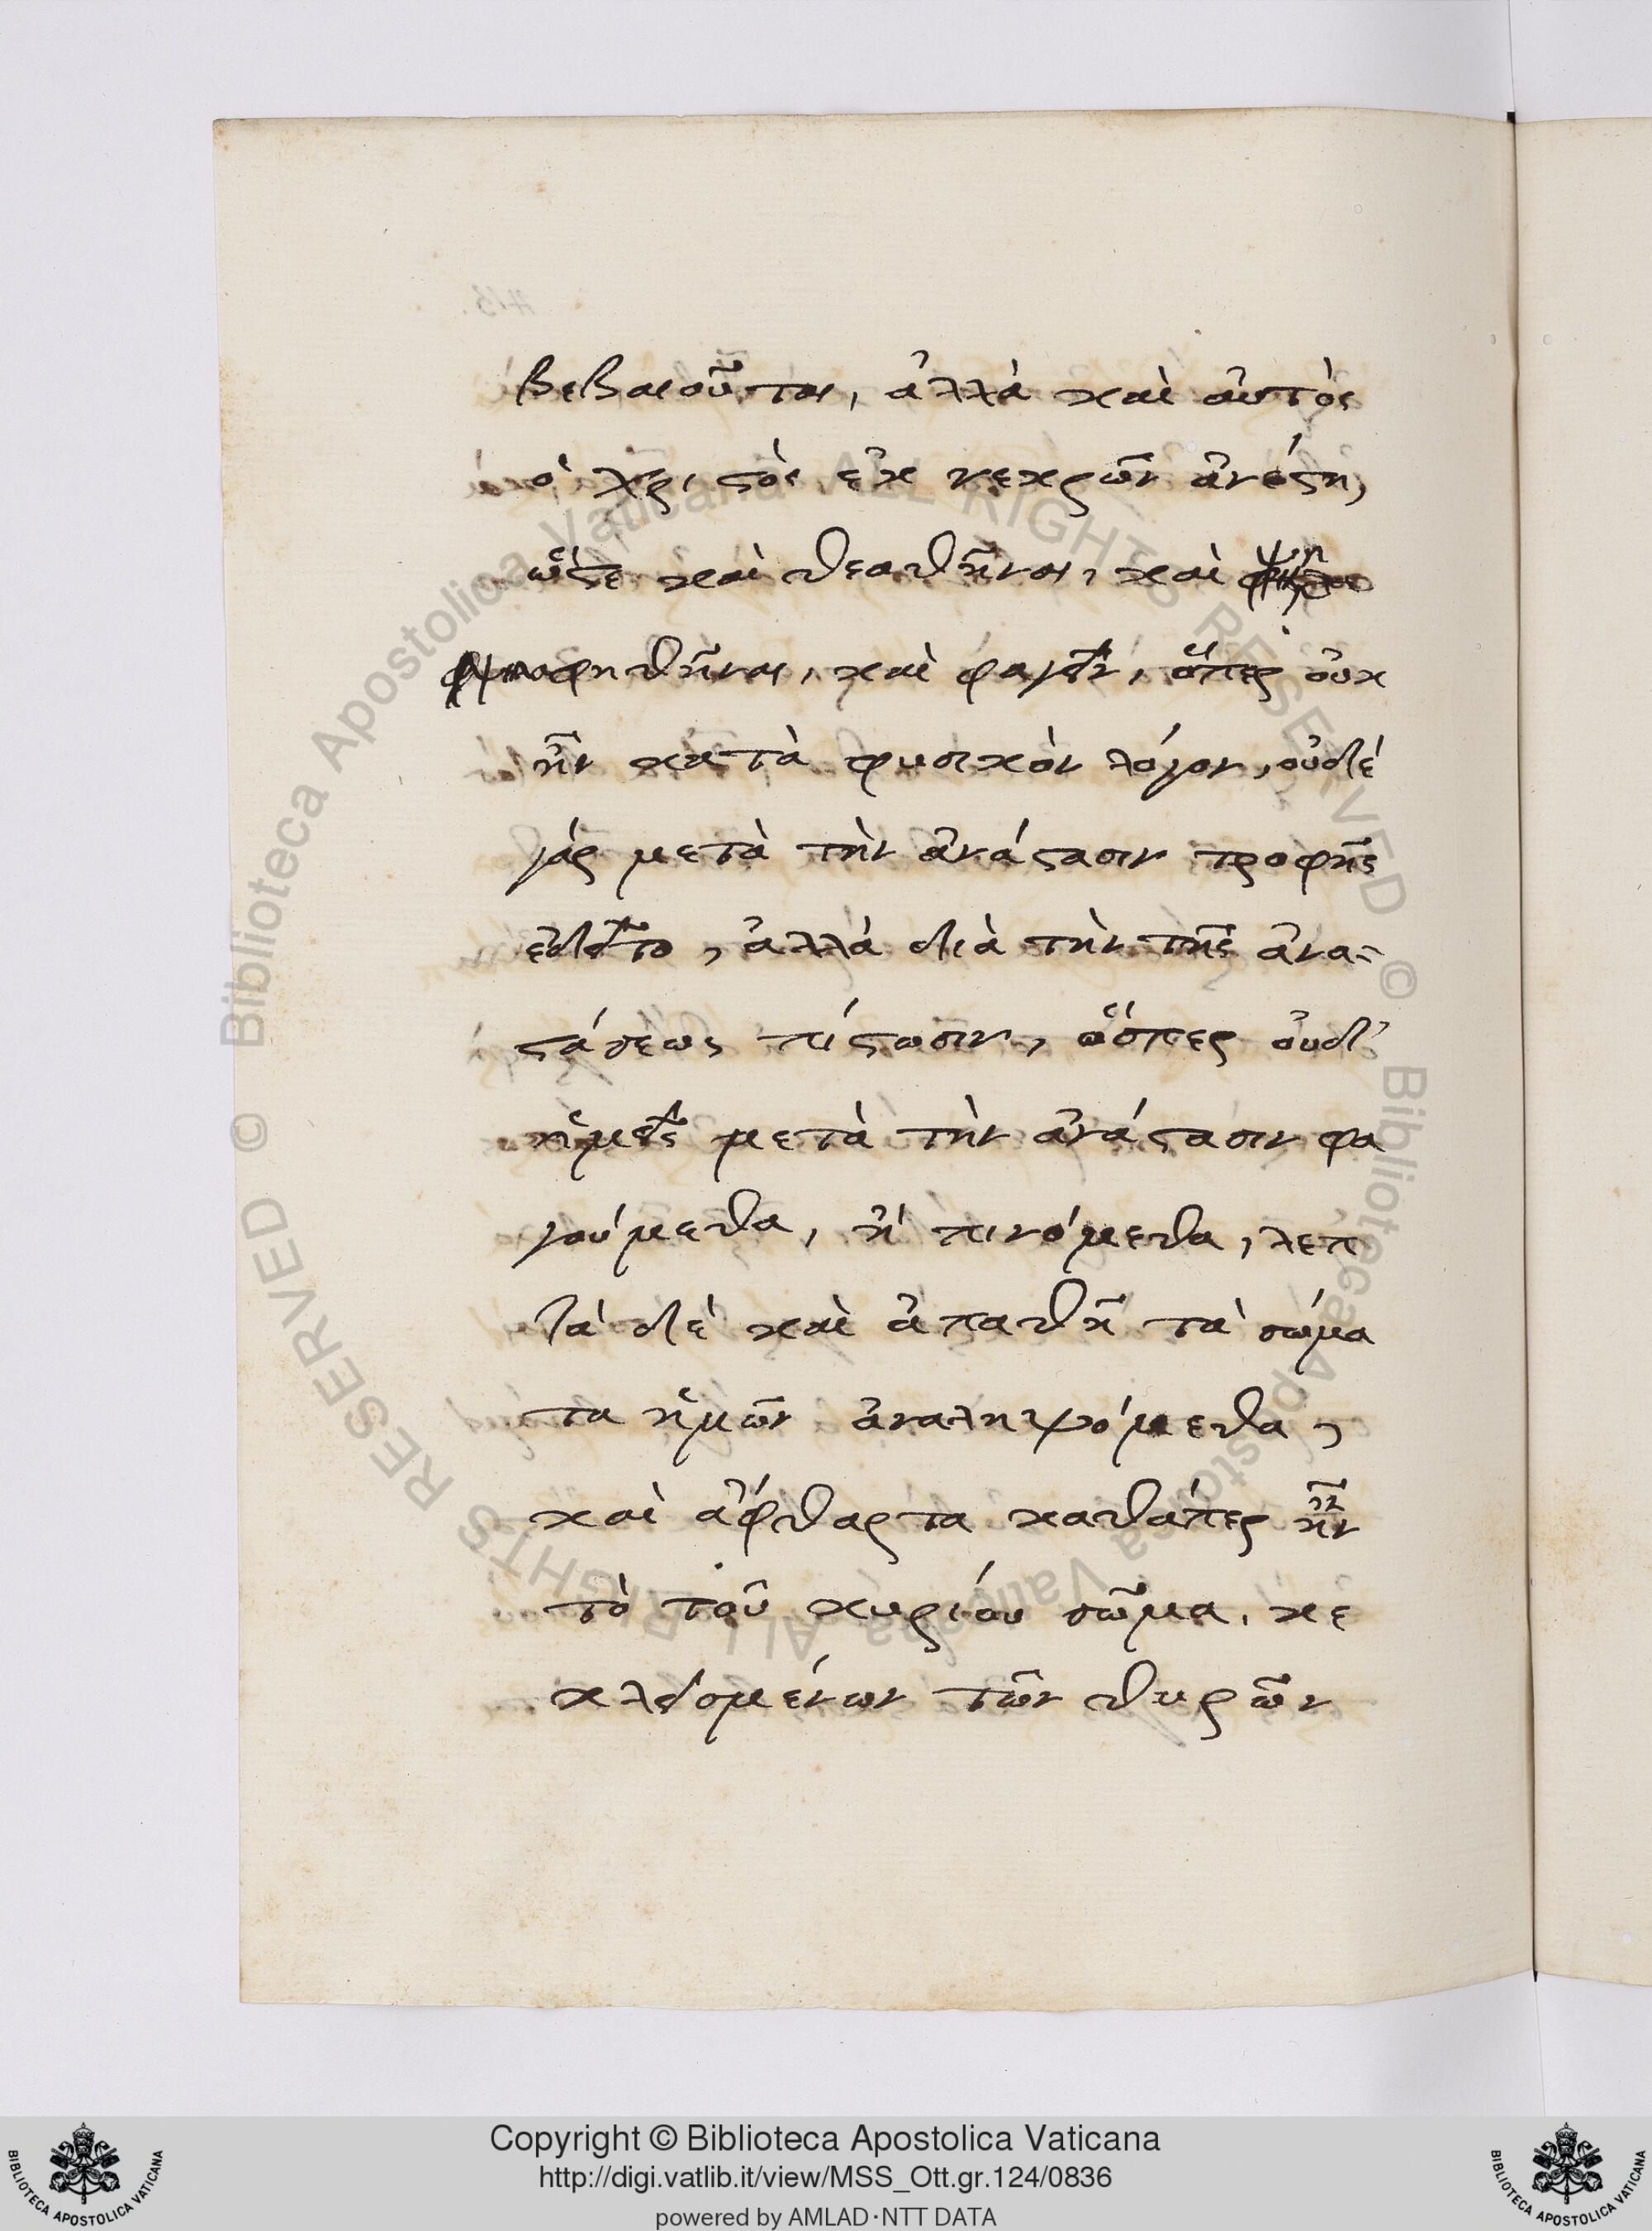 βεβαιοῦται, ἀλλὰ καὶ αὐτὸς
ὁ χριστὸς ἐκ νεκρῶν ἀνέστη,
ὥστε καὶ θεαθῆναι, καὶ ψη
λαφηθῆναι, καὶ φαγεῖν, ὅπερ οὐκ
ἦν κατὰ φυσικὸν λόγον, οὐδὲ
γὰρ μετὰ τὴν ἀνάστασιν τροφῆς
ἐδεῖτο, ἀλλὰ διὰ τὴν τῆς ἀνα-
στάσεως πίστωσιν, ὥσπερ οὐδ'
ἡμεῖς μετὰ τὴν ἀνάστασιν φα
γούμεθα, ἢ πινόμεθα, λεπ
τὰ δὲ καὶ ἀπαθῆ τὰ σώμα
τα ἡμῶν ἀναληψόμεθα,
καὶ ἄφθαρτα καθάπερ ἦν
τὸ τοῦ κυρίου σῶμα, κε
κλεισμένων τῶν θυρῶν
Copyright © Biblioteca Apostolica Vaticana
http://digi.vatlib.it/view/MSS_Ott.gr.124/0836
powered by AMLAD·NTT DATA
BIBLIOTECA APOSTOLICA VATICANA
BIBLIOTECA APOSTOLICA VATICANA
© Biblioteca Apostolica Vaticana ALL RIGHTS RESERVED
© Biblioteca Apostolica Vaticana ALL RIGHTS RESERVED